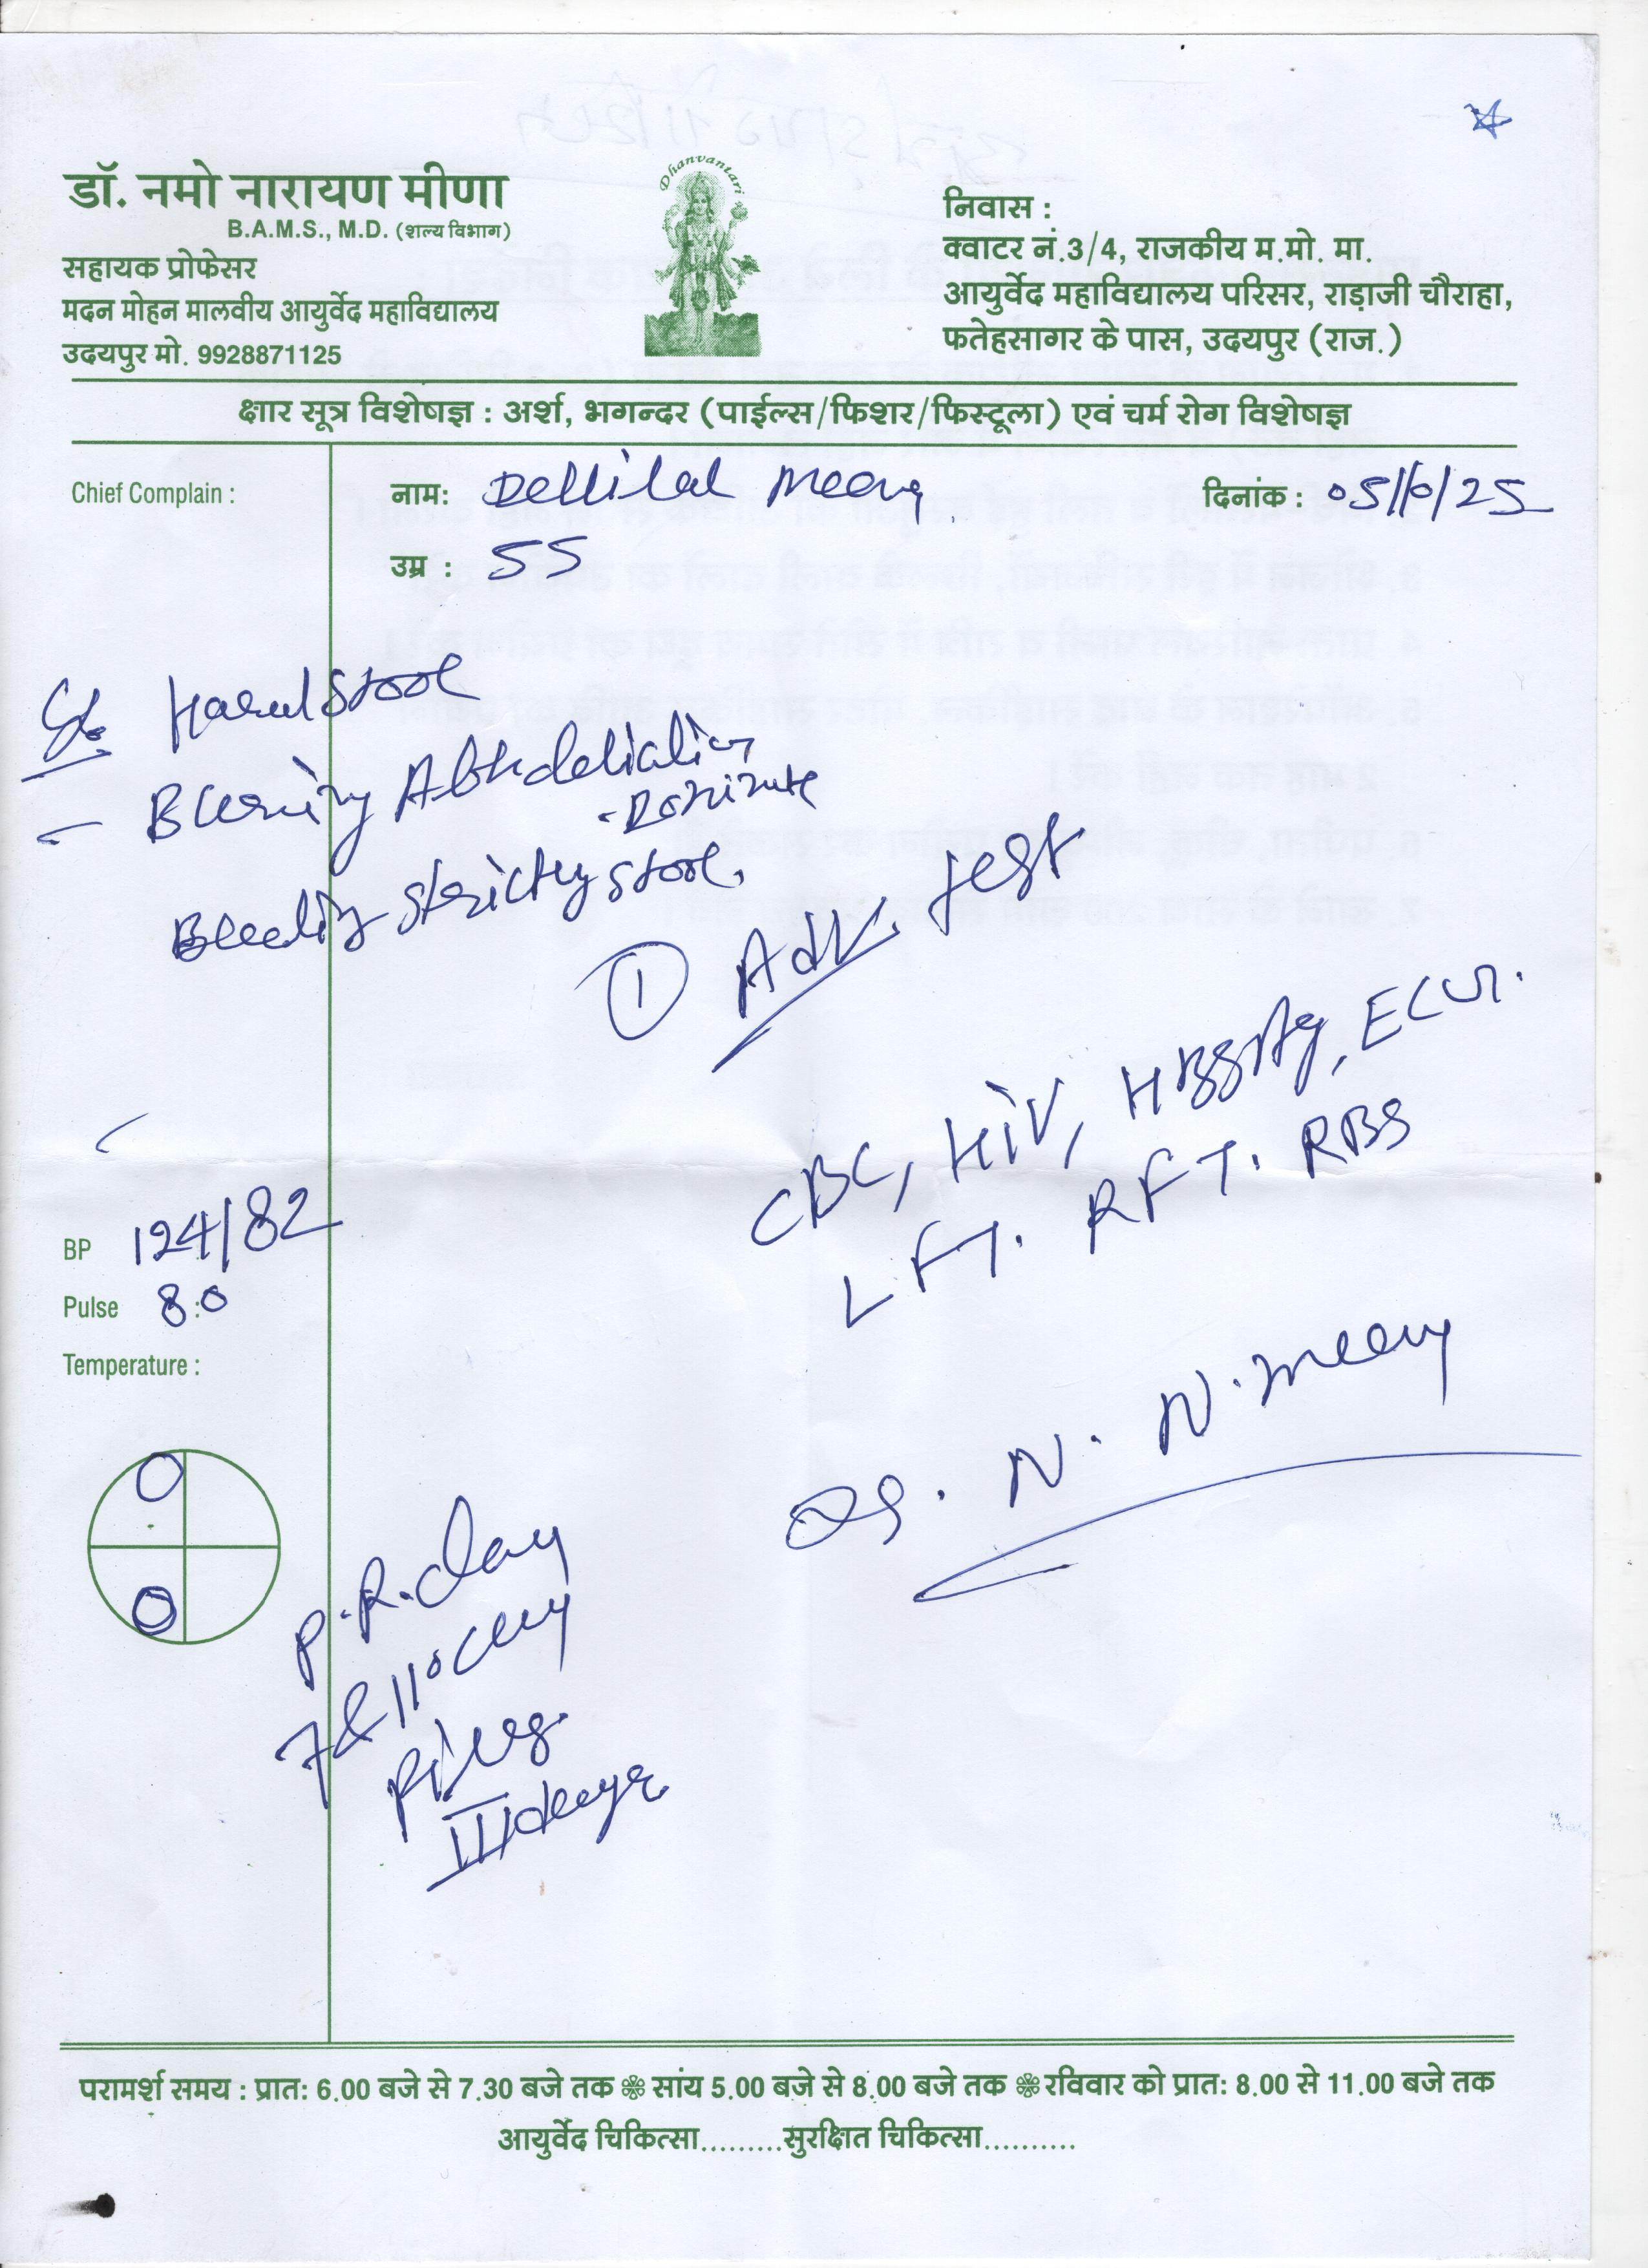 डॉ. नमो नारायण मीणा
B.A.M.S., M.D. (शल्य विभाग)
सहायक प्रोफेसर
मदन मोहन मालवीय आयुर्वेद महाविद्यालय
उदयपुर मो. 9928871125
Dhanvantari
निवास :
क्वाटर नं.3/4, राजकीय म.मो. मा.
आयुर्वेद महाविद्यालय परिसर, राड़ाजी चौराहा,
फतेहसागर के पास, उदयपुर (राज.)
क्षार सूत्र विशेषज्ञ : अर्श, भगन्दर (पाईल्स/फिशर/फिस्टूला) एवं चर्म रोग विशेषज्ञ
Chief Complain :
नाम: Meena
दिनांक :
उम्र : 55
Hard stool
Burning
Bleeding stool
① Adv. Test
CBC, HiV, HBsAg, ECG.
LFT. RFT. RBS
BP 124/82
Pulse : 80
Temperature :
Dr. N. N. Meena
P.R.
7 & 11°
Piles
III
परामर्श समय : प्रातः 6.00 बजे से 7.30 बजे तक ❀ सांय 5.00 बजे से 8.00 बजे तक ❀ रविवार को प्रातः 8.00 से 11.00 बजे तक
आयुर्वेद चिकित्सा.........सुरक्षित चिकित्सा..........